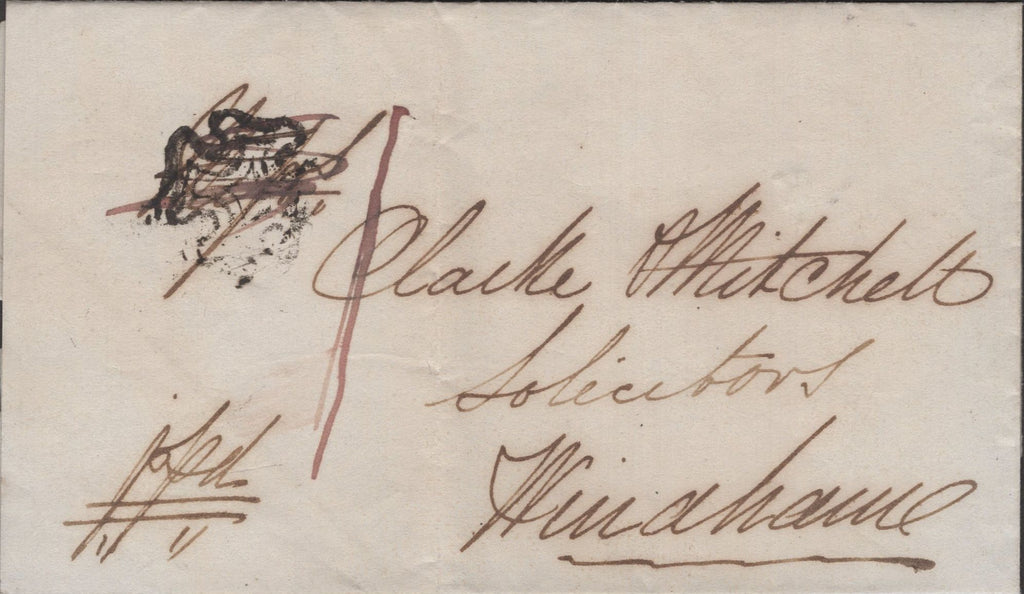 Clarke & Mitchell
Solicitors
Windhame
ppd